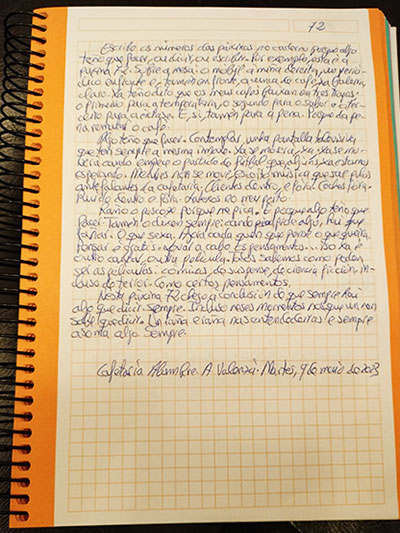 72
Escribo os números das páxinas no caderno porque algo
teño que facer, ou dicir, ou escribir. Por exemplo, esta é a
páxina 72. Sobre a mesa: o móbil á miña dereita, un perió-
dico enfronte e, tamén enfronte, a cunca do café xa baleira,
claro. Xa teño dito que os meus cafés baixan en tres tragos.
o primeiro para a temperatura, o segundo para o sabor e o ter-
ceiro para a nostalxia. E, si, tamén para a pena. Porque da pe-
na rematar o café.
Algo teño que facer. Contemplar unha pantalla televisiva
que ten sempre a mesma imaxe. Xa se moverá, xa, xa se mo-
verá cando empece o partido de fútbol que algúns xa estamos
esperando. Mentres non se move, escoito música que sae polos
antefalantes da cafetaría. Clientes dentro, e fóra. Coches fóra.
Ruído dentro e fóra. Latexos no meu peito.
Raño o pescozo porque me pica. E porque algo teño que
facer. Tamén o dinen sempre: cando pica algo, hai que
rañar. O que sexa. Aquí cada quen que pense o que queira,
pensar é gratis. Levar a cabo os pensamentos... iso xa é
outro cantar, outra película. Todos sabemos como poden
ser as películas: cómicas, de suspense, de ciencia ficción, in-
cluso de terror. Como certos pensamentos.
Nesta páxina 72 chego á conclusión de que sempre hai
algo que dicir. Sempre. Incluso neses momentos nos que un non
sabe que dicir. Un tira e tira nas entendedeiras e sempre
asoma algo. Sempre.
Cafetaría Alambre. A Valenzá. Martes, 9 de maio de 2023